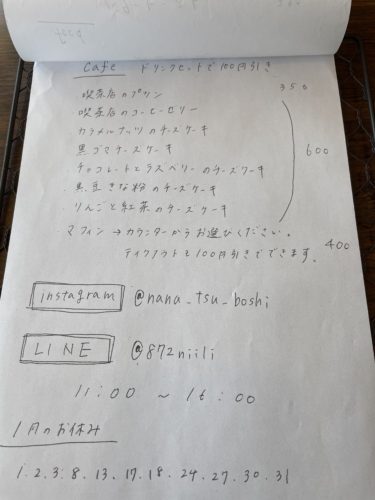 Cafe ドリンクセットで100円引き
喫茶店のプリン 350
喫茶店のコーヒーゼリー
カラメルナッツのチーズケーキ
黒ゴマチーズケーキ 600
チョコレートとラズベリーのチーズケーキ
黒豆きな粉のチーズケーキ
りんごと紅茶のチーズケーキ
マフィン→カウンターからお選びください。 400
テイクアウトも100円引きでできます。
instagram @nana_tsu_boshi
LINE @872niili
11:00 〜 16:00
1月のお休み
1.2.3.8.13.17.18.24.27.30.31